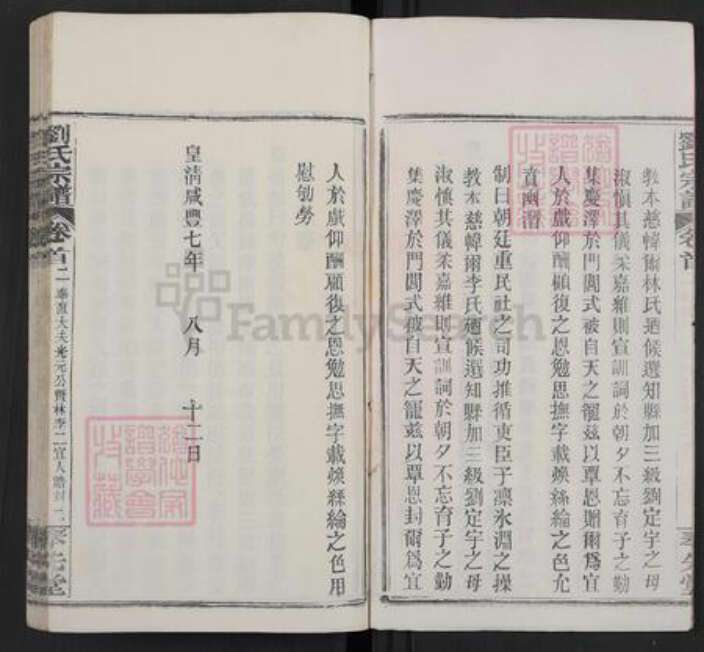 教本慈幃爾林氏迺候選知縣加三級劉定宇之母
淑慎其儀柔嘉維則宣訓詞於朝夕不忘育子之勤
集慶澤於門閭式被自天之寵茲以覃恩贈爾爲宜
人於戲仰酬顧復之恩勉思撫字載煥絲綸之色允
賁幽潛
制曰朝廷重民社之司功推循吏臣子凜氷淵之操
教本慈幃爾李氏迺候選知縣加三級劉定宇之母
淑慎其儀柔嘉維則宣訓詞於朝夕不忘育子之勤
集慶澤於門閭式被自天之寵茲以覃恩封爾爲宜
劉氏宗譜 卷首
人於戲仰酬顧復之恩勉思撫字載煥絲綸之色用
慰劬勞
皇清咸豐七年 八月 十二日
劉氏宗譜 卷首二 奉直大夫 元公暨林李二宜人誥封
FamilySearch